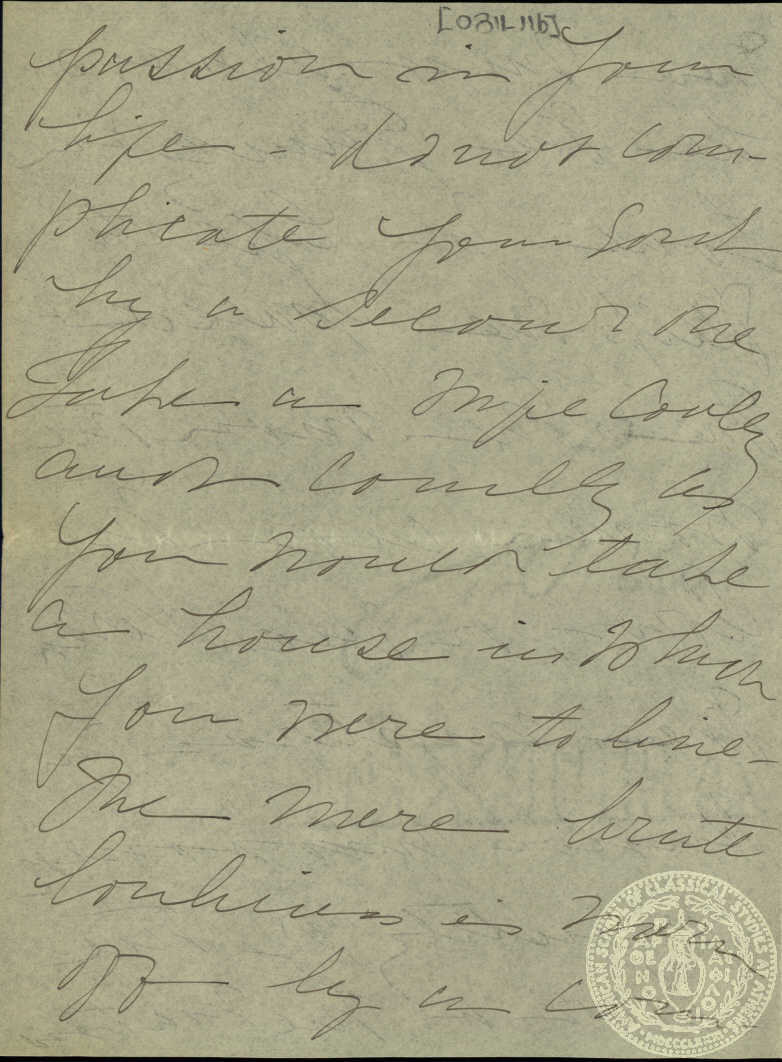 passion in your
life - do not com-
plicate your Soul
by a second one
Take a wife coolly
and as
you would take
a house in which
you were to live -
The mere brute
loneliness is worn
off by a com
AMERICAN SCHOOL OF CLASSICAL STUDIES AT ATHENS
MDCCCLXXXI